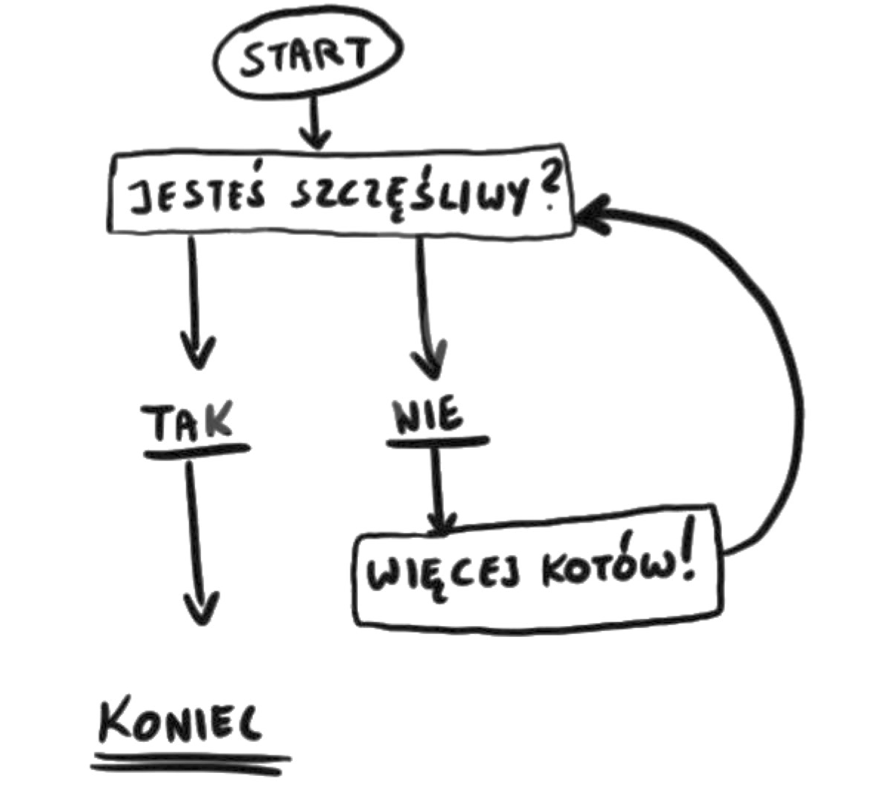 START
JESTEŚ SZCZĘŚLIWY?
TAK
NIE
WIĘCEJ KOTÓW!
KONIEC